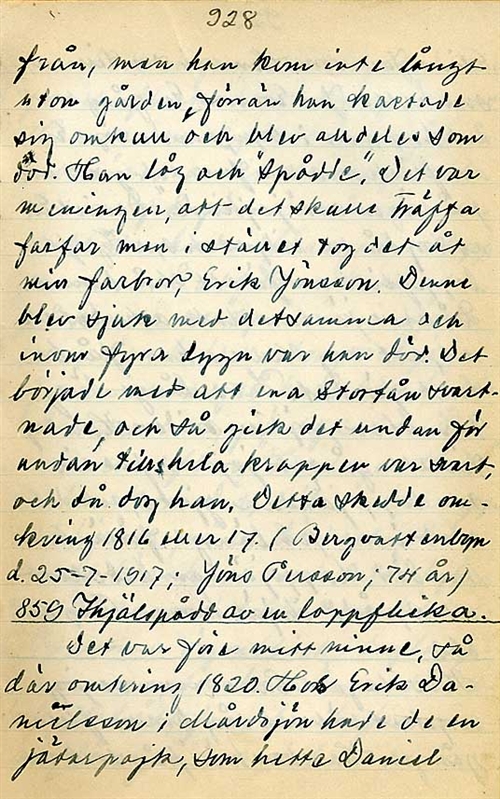 928
från, men han kom inte långt
utom gården, förrän han kastade
sig omkull och blev alldeles som
död. Han låg och "spådde". Det var
meningen, att det skulle träffa
farfar men i stället tog det åt
min farbror, Erik Jönsson. Denne
blev sjuk med detsamma och
inom fyra dygn var han död. Det
började med att ena stortån svart-
nade, och så gick det undan för
undan tills hela kroppen var svart,
och då dog han. Detta skedde om-
kring 1816 eller 17. (Bergvattenbyn
d. 25-7-1917; Jöns Persson; 74 år)
859 Ihjälspådd av en lappflicka.
Det var före mitt minne, så
där omkring 1820. Hos Erik Da-
nielsson i Mårdsjön hade de en
jätarpojk, som hette Daniel